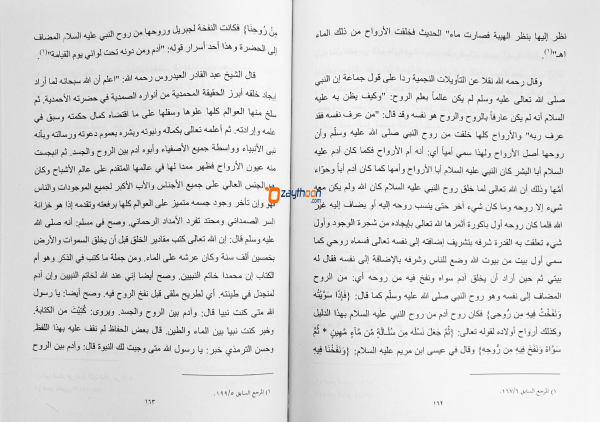 نظر إليها بنظر الهيبة فصارت ماء" الحديث فخلقت الأرواح من ذلك الماء
اهـ"(١).
وقال رحمه الله نقلا عن التأويلات النجمية ردا على قول جماعة إن النبي
صلى الله تعالى عليه وسلم لم يكن عالماً بعلم الروح: "وكيف يظن به عليه
السلام أنه لم يكن عارفاً بالروح والروح هو نفسه وقد قال: "من عرف نفسه فقد
عرف ربه" والأرواح كلها خلقت من روح النبي صلى الله عليه وسلّم وأن
روحها أصل الأرواح ولهذا سمي أمياً أي: أنه أم الأرواح فكما كان آدم عليه
السلام أبا البشر كان النبي عليه السلام أبا الأرواح وأمها كما كان آدم أباً وحوّاء
أمّها وذلك أن الله تعالى لما خلق روح النبي عليه السلام كان الله ولم يكن معه
شيء إلا روحه وما كان شيء آخر حتى ينسب روحه إليه أو يضاف إليه غير
الله فلما كان روحه أول باكورة أثمرها الله تعالى بإيجاده من شجرة الوجود وأول
شيء تعلقت به القدرة شرفه بتشريف إضافته إلى نفسه تعالى فسماه روحي كما
سمي أول بيت من بيوت الله وضع للناس وشرفه بالإضافة إلى نفسه فقال له
بيتي ثم حين أراد أن يخلق آدم سواه ونفخ فيه من روحه أي: من الروح
المضاف إلى نفسه وهو روح النبي صلى الله عليه وسلّم كما قال: {فَإِذَا سَوَّيْتُه
وَنَفَخْتُ فِيهِ مِن رُوحِى} فكان روح آدم من روح النبي عليه السلام بهذا الدليل
وكذلك أرواح أولاده لقوله تعالى: {ثُمَّ جَعَلَ نَسْلَه مِن سُلَالَةٍ مِّن مَّآءٍ مَّهِينٍ * ثُمَّ
سَوَّاهُ وَنَفَخَ فِيهِ مِن رُّوحِهِ} وقال في عيسى ابن مريم عليه السلام: {وَنَفَخْنَا فِيهِ
١) المرجع السابق ١٦٧/٦.
١٦٢
مِن رُوحِنَا} فكانت النفخة لجبريل وروحها من روح النبي عليه السلام المضاف
إلى الحضرة وهذا أحد أسرار قوله: "آدم ومن دونه تحت لوائي يوم القيامة"(١).
قال الشيخ عبد القادر العيدروس رحمه الله: "اعلم أن الله سبحانه لما أراد
إيجاد خلقه أبرز الحقيقة المحمدية من أنواره الصمدية في حضرته الأحمدية، ثم
سلخ منها العوالم كلها علوها وسفلها على ما اقتضاه كمال حكمته وسبق في
علمه وإرادته، ثم أعلمه تعالى بكماله ونبوته وبشره بعموم دعوته ورسالته وبأنه
نبي الأنبياء وواسطة جميع الأصفياء وأبوه آدم بين الروح والجسد. ثم انبجست
منه عيون الأرواح فظهر ممداً لها في عالمها المتقدم على عالم الأشباح وكان
هو الجنس العالي على جميع الأجناس والأب الأكبر لجميع الموجودات والناس
فهو وإن تأخر وجود جسمه متميز على العوالم كلها برفعته وتقدمه إذ هو خزانة
السر الصمداني ومحتد تفرد الأمداد الرحماني. وصح في مسلم: أنه صلى الله
عليه وسلم قال: إن الله تعالى كتب مقادير الخلق قبل أن يخلق السموات والأرض
بخمسين ألف سنة وكان عرشه على الماء. ومن جملة ما كتب في الذكر وهو أم
الكتاب إن محمداً خاتم النبيين. وصح أيضا إني عند الله لخاتم النبيين وإن آدم
لمنجدل في طينته. أي لطريح ملقى قبل نفخ الروح فيه. وصح أيضا: يا رسول
الله متى كنت نبيا قال: وآدم بين الروح والجسد. ويروى: كُتِبْتَ من الكتابة.
وخبر كنت نبيا بين الماء والطين. قال بعض الحفاظ لم نقف عليه بهذا اللفظ.
وحسن الترمذي خبر: يا رسول الله متى وجبت لك النبوة قال: وآدم بين الروح
١) المرجع السابق ١٩٩/٥.
١٦٣
zaythoon.com